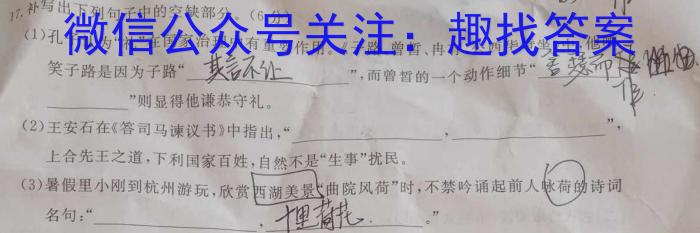 17.补写出下列句子中的空缺部分。(6分)
微信公众号关注：趣找答案
(1)孔
笑子路是因为子路“其言不让”,而曾皙的一个动作细节“舍瑟而作
”则显得他谦恭守礼。
(2)王安石在《答司马谏议书》中指出,“ , ”,
上合先王之道,下利国家百姓,自然不是“生事”扰民。
(3)暑假里小刚到杭州游玩,欣赏西湖美景“曲院风荷”时,不禁吟诵起前人咏荷的诗词
名句:“ , 十里荷花 。”